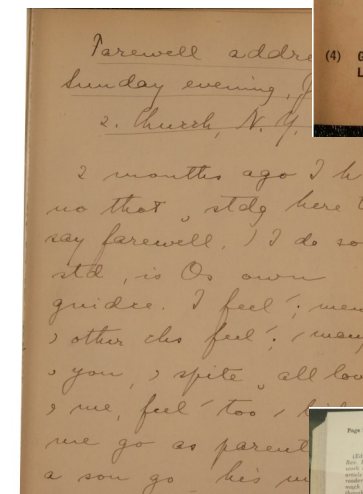 Farewell addre
Sunday evening, J
2. Church, N. Y.
2 months ago I h
no that, stdg here t
say farewell, I do so
std, is Os own
guidce. I feel; mem
other chs feel; many
you, spite, all lov
me, feel too
me go as parent
a son go, he's
(4) G
L
Page